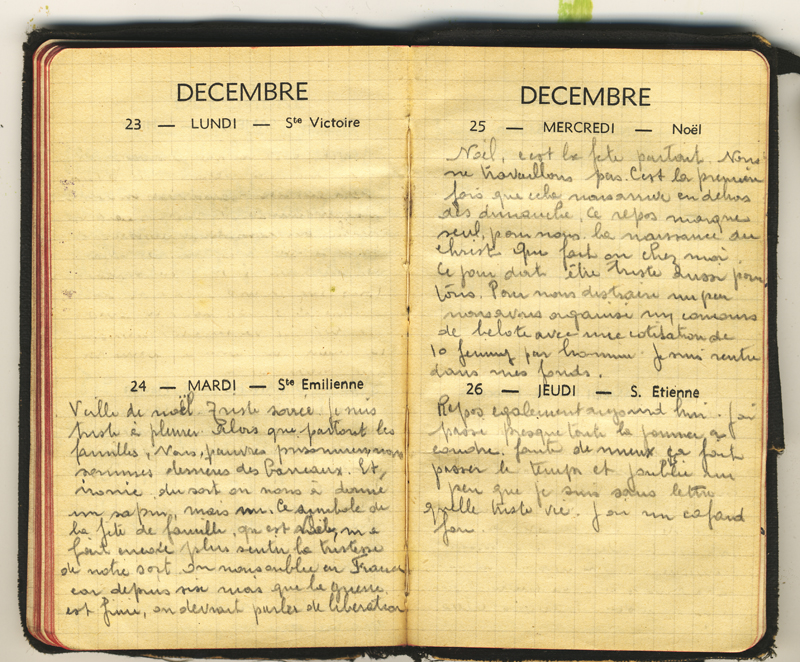 DECEMBRE
23 — LUNDI — Ste Victoire
24 — MARDI — Ste Emilienne
Veille de noël. Triste soirée. Je suis
triste à pleurer. Alors que partout les
familles, Nous, pauvres prisonniers, nous
sommes derrières des barreaux. Et,
ironie du sort on nous à donné
un sapin, mais nu. Ce symbole de
la fête de famille, qu est Noël, m a
fait encore plus sentir la tristesse
de notre sort. On nous oublie en France
car depuis six mois que la guerre
est finie, on devrait parler de libération
DECEMBRE
25 — MERCREDI — Noël
Noël, c'est la fête partout. Nous
ne travaillons pas. C'est la première
fois que cela nous arrive en dehors
des dimanche. Ce repos marque
seul, pour nous la naissance du
Christ. Que fait on chez moi.
Ce jour doit être triste aussi pour
tous. Pour nous distraire un peu
nous avons organisé un concours
de belote avec une cotisation de
10 par homme. Je suis rentré
dans mes fonds.
26 — JEUDI — S. Etienne
Repos également aujourd hui. J ai
passé presque toute la journée à
coudre. faute de mieux ça fait
passer le temps et j'oublie un
peu que je suis sans lettre
quelle triste vie. J ai un cafard
fou